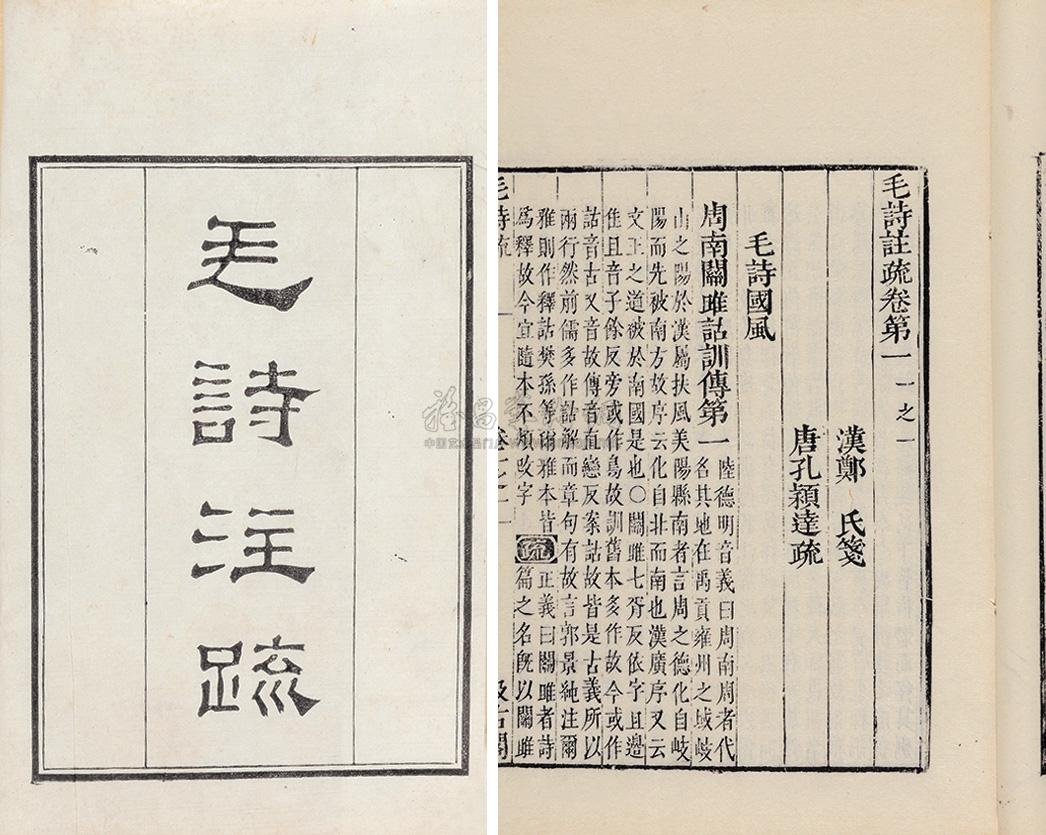 毛詩注疏
毛詩註疏卷第一 一之一
漢鄭 氏箋
唐孔穎達疏
毛詩國風
周南關雎詁訓傳第一 陸德明音義曰周南周者代
名其地在禹貢雍州之域岐
山之陽於漢屬扶風美陽縣南者言周之德化自岐
陽而先被南方故序云化自北而南也漢廣序又云
文王之道被於南國是也○關雎七胥反依字且邊
隹且音子餘反旁或作鳥故訓舊本多作故今或作
詁音古又音故傳音直戀反案詁故皆是古義所以
兩行然前儒多作詁解而章句有故言郭景純注爾
雅則作釋詁樊孫等爾雅本皆
為釋故今宜隨本不煩改字
疏
正義曰關雎者詩
篇之名既以關雎
毛詩疏
汲古閣